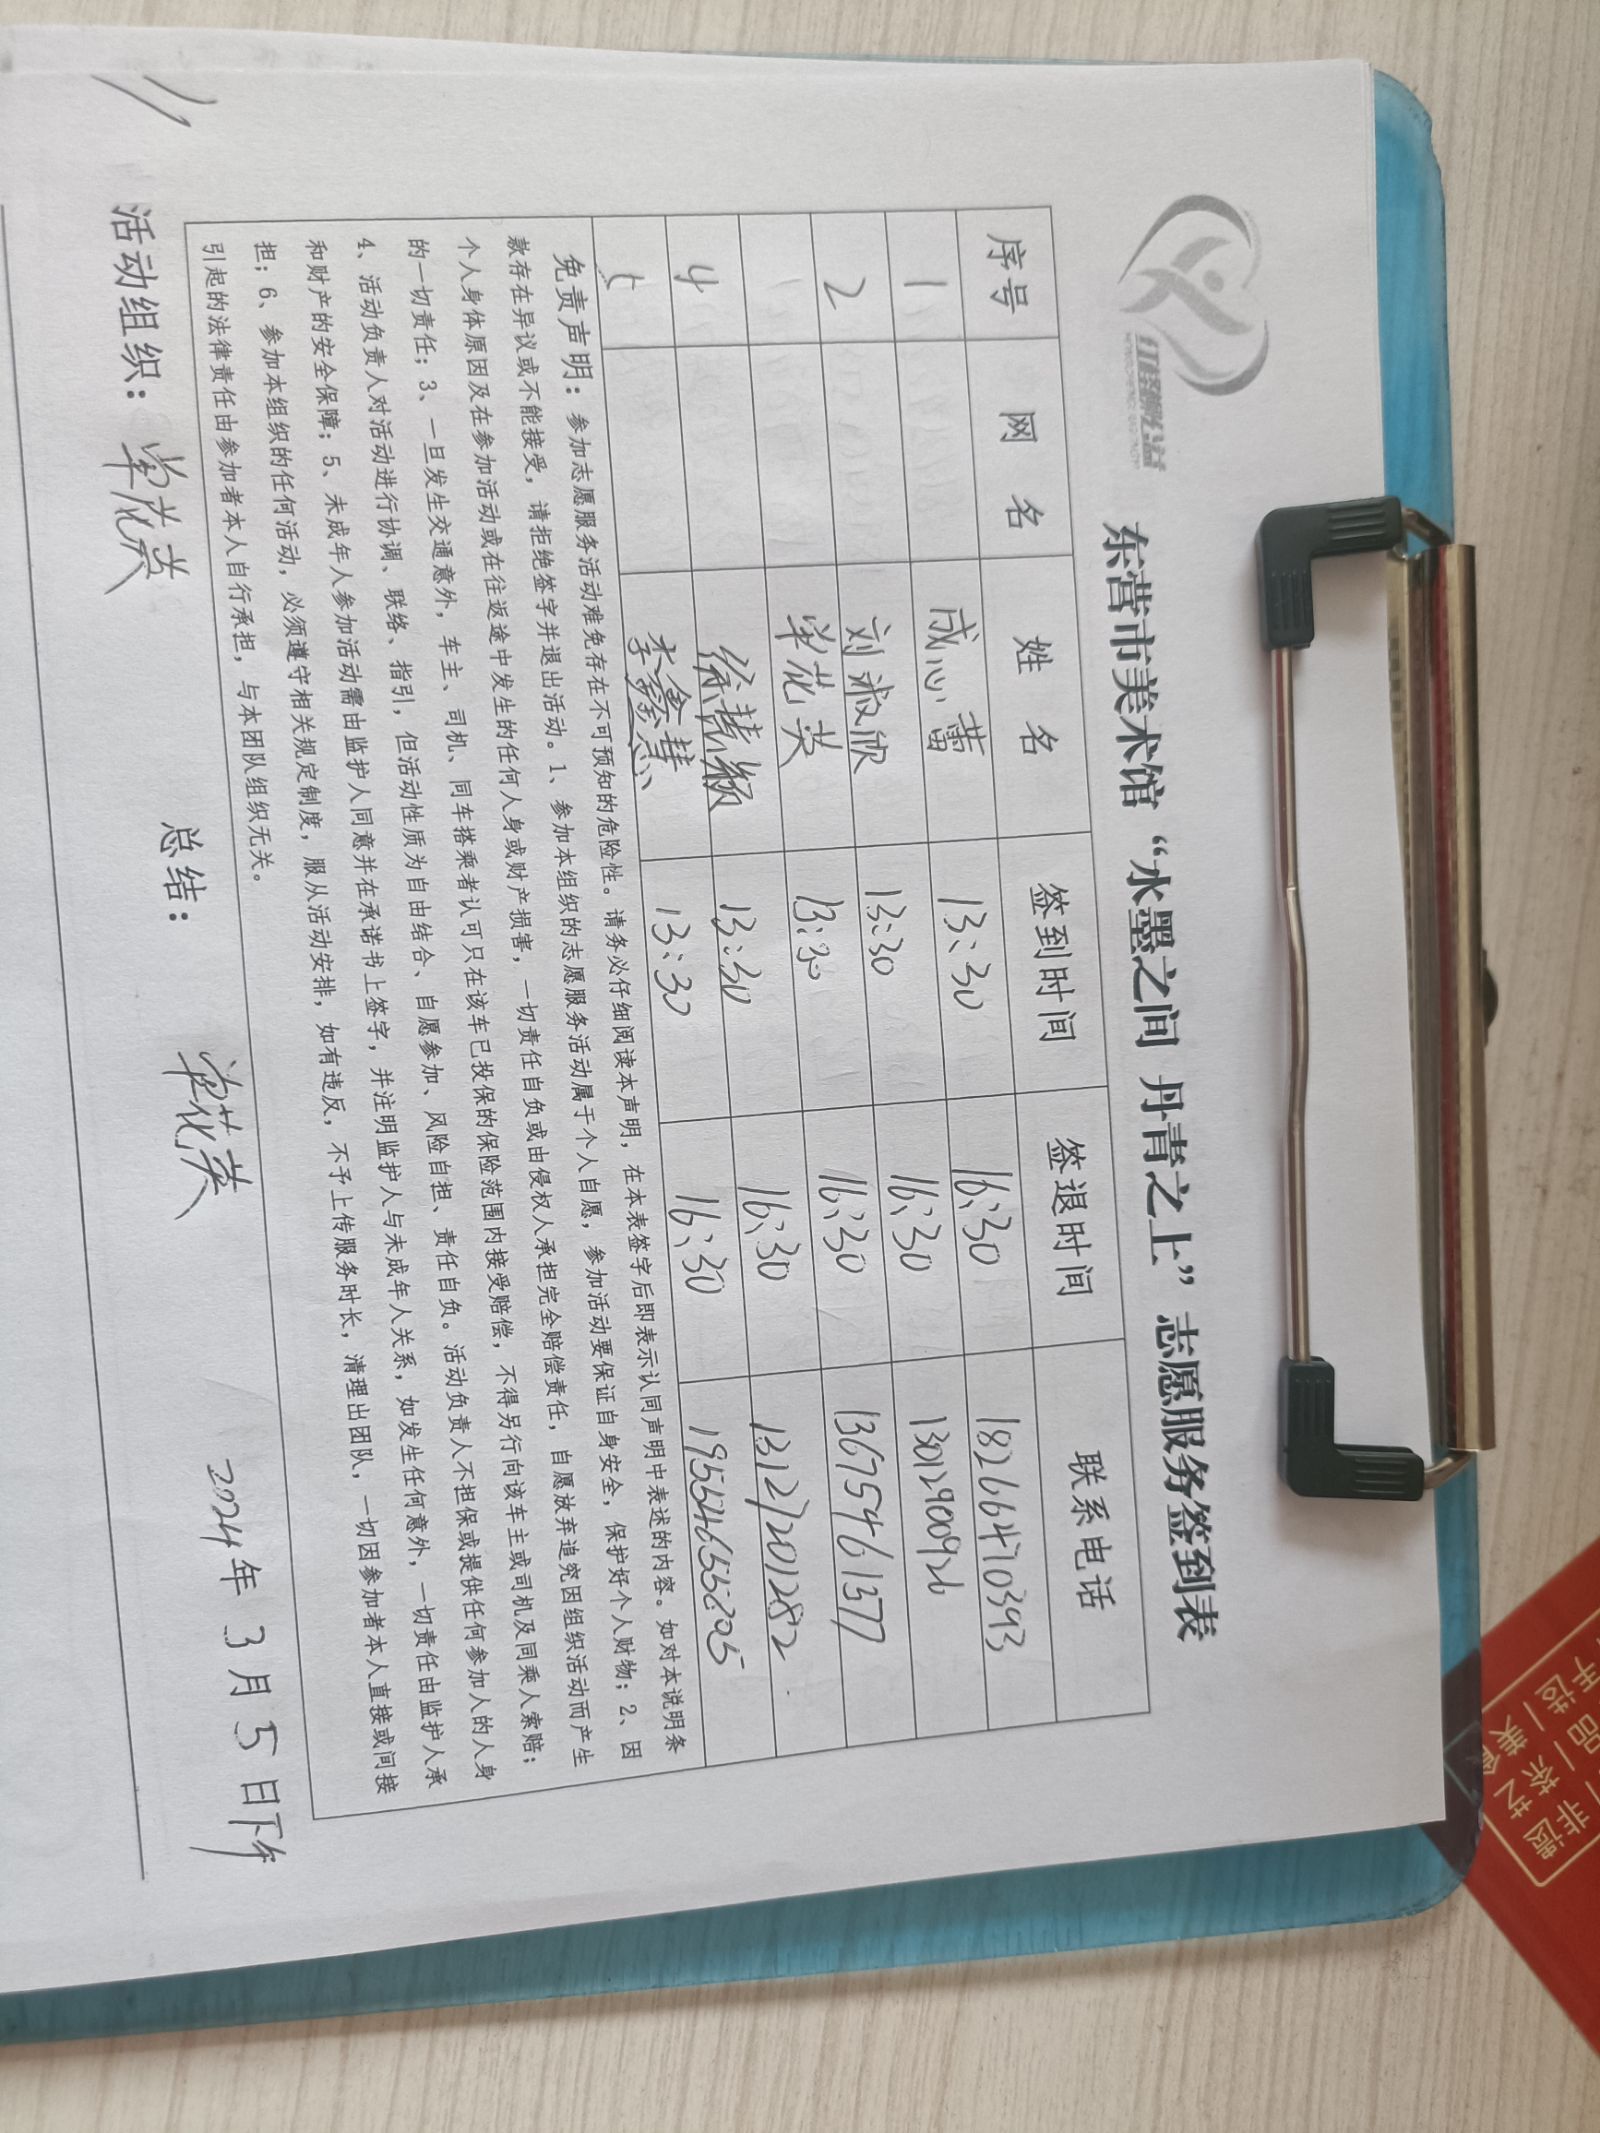 东营市美术馆“水墨之间 丹青之上”志愿服务签到表
序号 网名 姓名 签到时间 签退时间 联系电话
1 成心蕾 13:30 16:30 18266470393
2 刘淑欣 13:30 16:30 13012900926
单花英 13:30 16:30 13675461577
4 徐慧颖 13:30 16:30 13127201282
李鑫慧 13:30 16:30 19554655205
免责声明：参加志愿服务活动难免存在不可预知的危险性。请务必仔细阅读本声明，在本表签字后即表示认同声明中表述的内容。如对本说明条
款存在异议或不能接受，请拒绝签字并退出活动。1、参加本组织的志愿服务活动属于个人自愿，参加活动要保证自身安全，保护好个人财物；2、因
个人身体原因及在参加活动或在往返途中发生的任何人身或财产损害，一切责任自负或由侵权人承担完全赔偿责任，自愿放弃追究因组织活动而产生
的一切责任；3、一旦发生交通意外，车主、司机、同车搭乘者认可只在该车已投保的保险范围内接受赔偿，不得另行向该车主或司机及同乘人索赔；
4、活动负责人对活动进行协调、联络、指引，但活动性质为自由结合、自愿参加、风险自担、责任自负。活动负责人不担保或提供任何参加人的人身
和财产的安全保障；5、未成年人参加活动需由监护人同意并在承诺书上签字，并注明监护人与未成年人关系，如发生任何意外，一切责任由监护人承
担；6、参加本组织的任何活动，必须遵守相关规定制度，服从活动安排，如有违反，不予上传服务时长，清理出团队，一切因参加者本人直接或间接
引起的法律责任由参加者本人自行承担，与本团队组织无关。
活动组织：单花英 总结：单花英 2024年3月5日下午